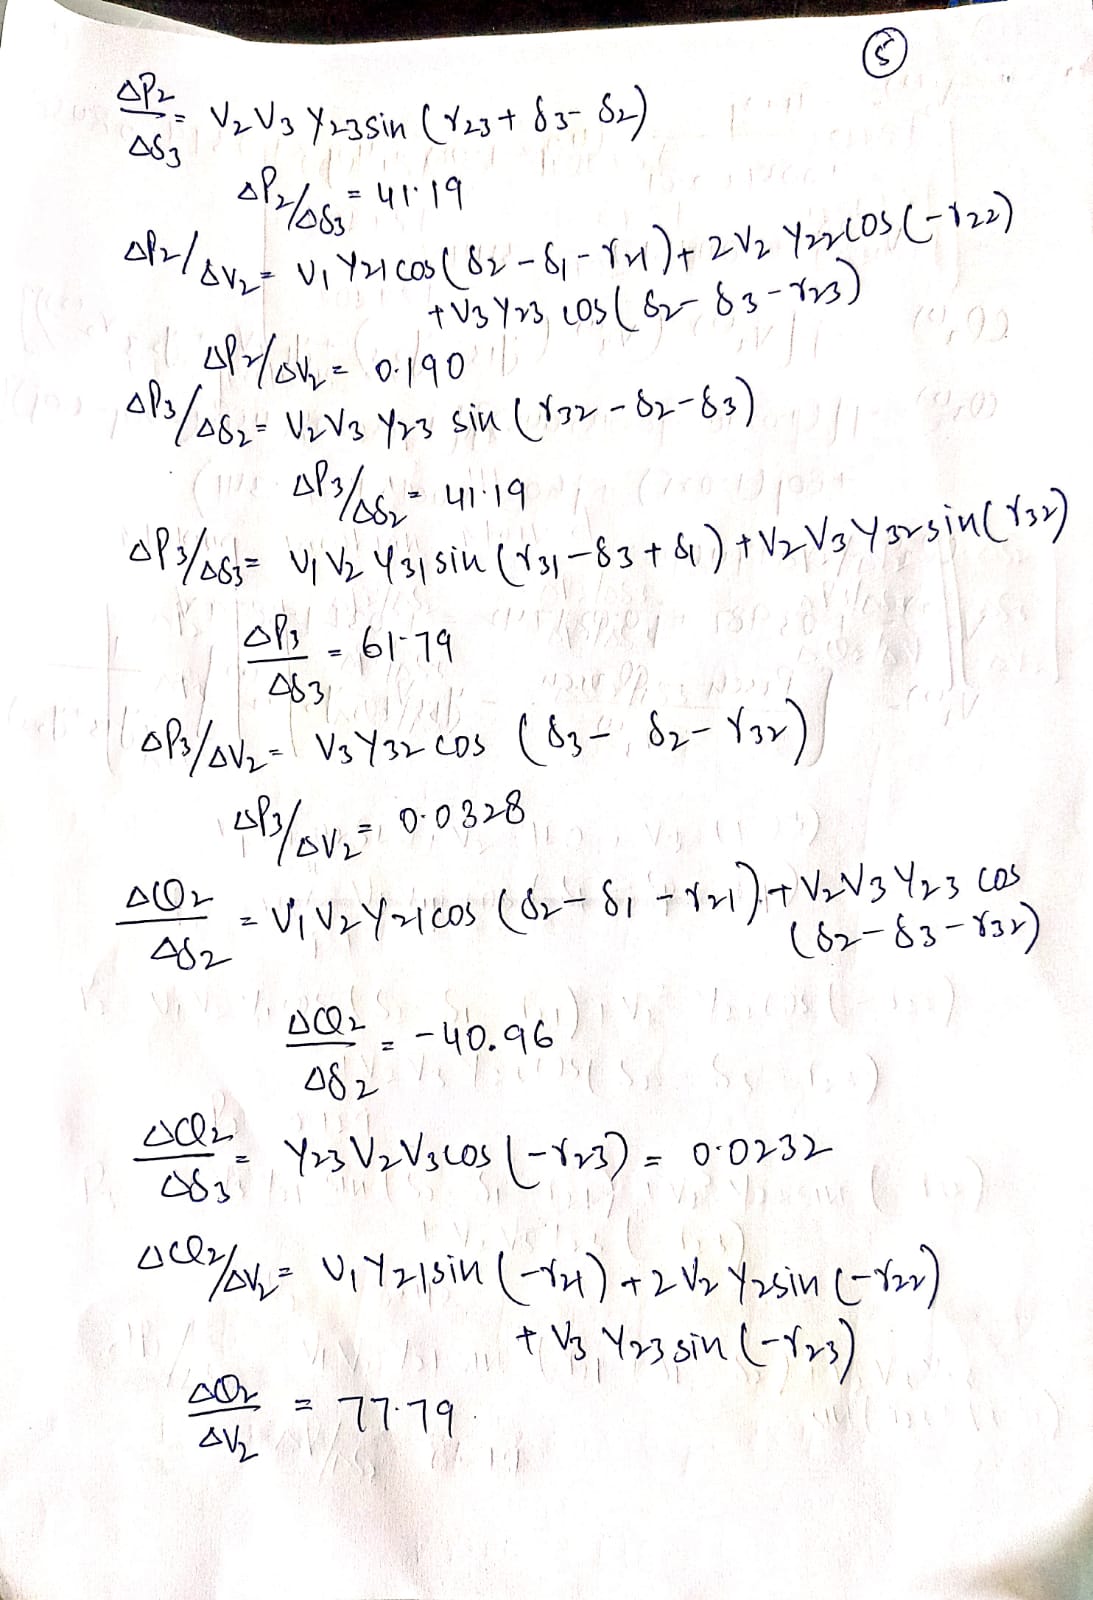 5
ΔP2/Δδ3 = V2V3 Y23sin (γ23 + δ3 - δ2)
ΔP2/Δδ3 = 41.19
ΔP2/ΔV2 = V1 Y21 cos (δ2 - δ1 - γ21) + 2V2 Y22 cos (-γ22)
+ V3 Y23 cos (δ2 - δ3 - γ23)
ΔP2/ΔV2 = 0.190
ΔP3/Δδ2 = V2V3 Y23 sin (γ32 - δ2 - δ3)
ΔP3/Δδ2 = 41.19
ΔP3/Δδ3 = V1 V2 Y31 sin (γ31 - δ3 + δ1) + V2V3 Y32 sin (γ32)
ΔP3/Δδ3 = 61.79
ΔP3/ΔV2 = V3 Y32 cos (δ3 - δ2 - γ32)
ΔP3/ΔV2 = 0.0328
ΔQ2/Δδ2 = V1 V2 Y21 cos (δ2 - δ1 - γ21) + V2V3 Y23 cos
(δ2 - δ3 - γ32)
ΔQ2/Δδ2 = -40.96
ΔQ2/Δδ3 = Y23 V2V3 cos (-γ23) = 0.0232
ΔQ2/ΔV2 = V1 Y21 sin (-γ21) + 2 V2 Y2 sin (-γ22)
+ V3 Y23 sin (-γ23)
ΔQ2/ΔV2 = 77.79